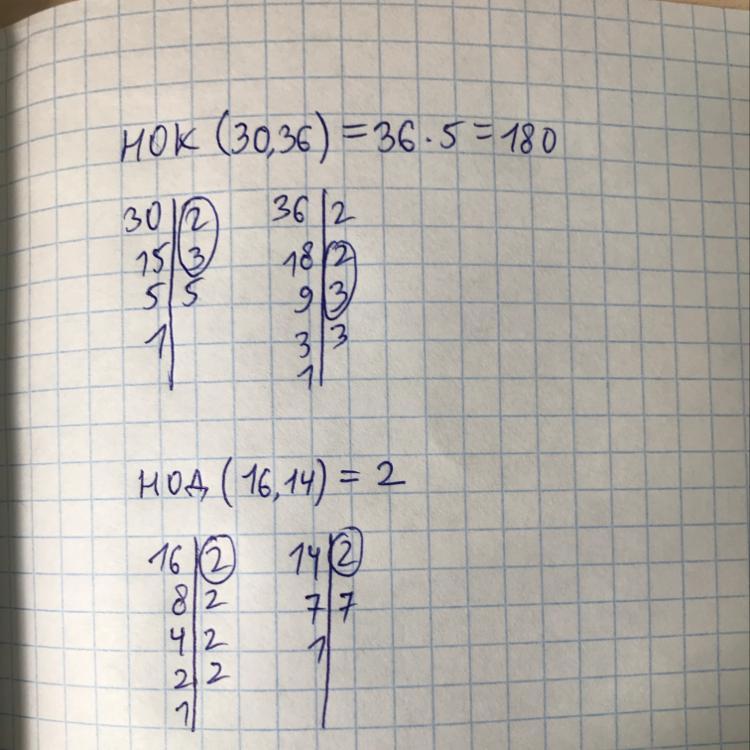 НОК (30,36) = 36 · 5 = 180
30 | 2 36 | 2
15 | 3 18 | 2
5 | 5 9 | 3
1 | 3 | 3
1 |
НОД (16,14) = 2
16 | 2 14 | 2
8 | 2 7 | 7
4 | 2 1 |
2 | 2
1 |